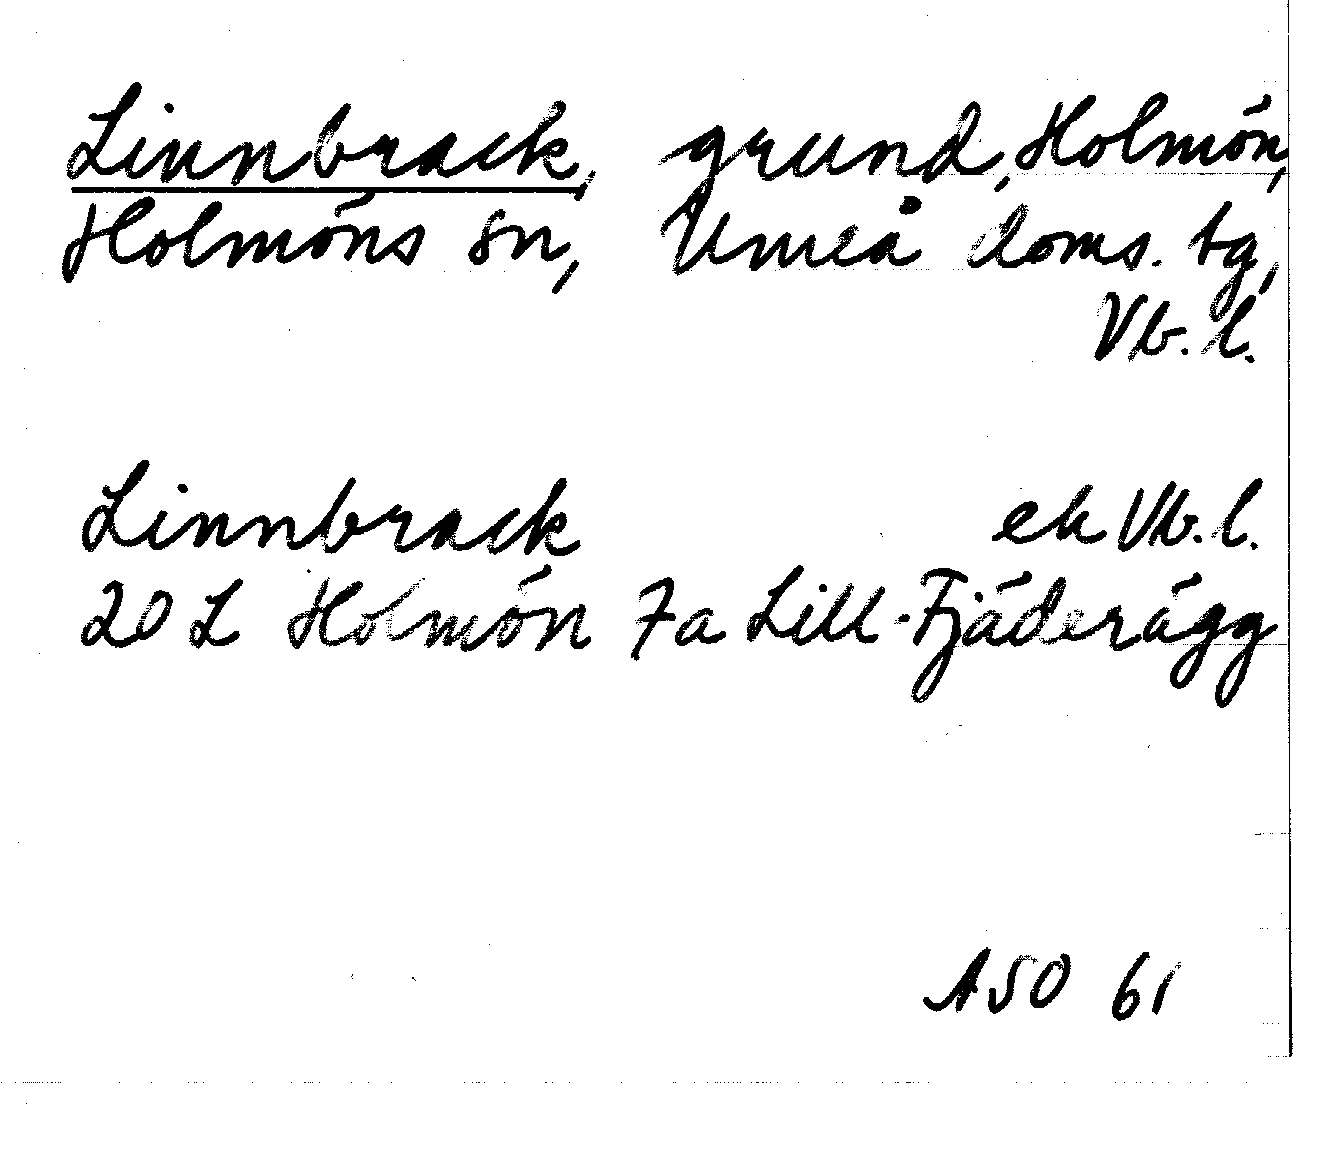 Linnbrack, grund, Holmön,
Holmöns sn, Umeå doms. tg,
Vb. l.
Linnbrack ek Vb. l.
20 L Holmön 7a Lill-Fjäderägg
ASO 61